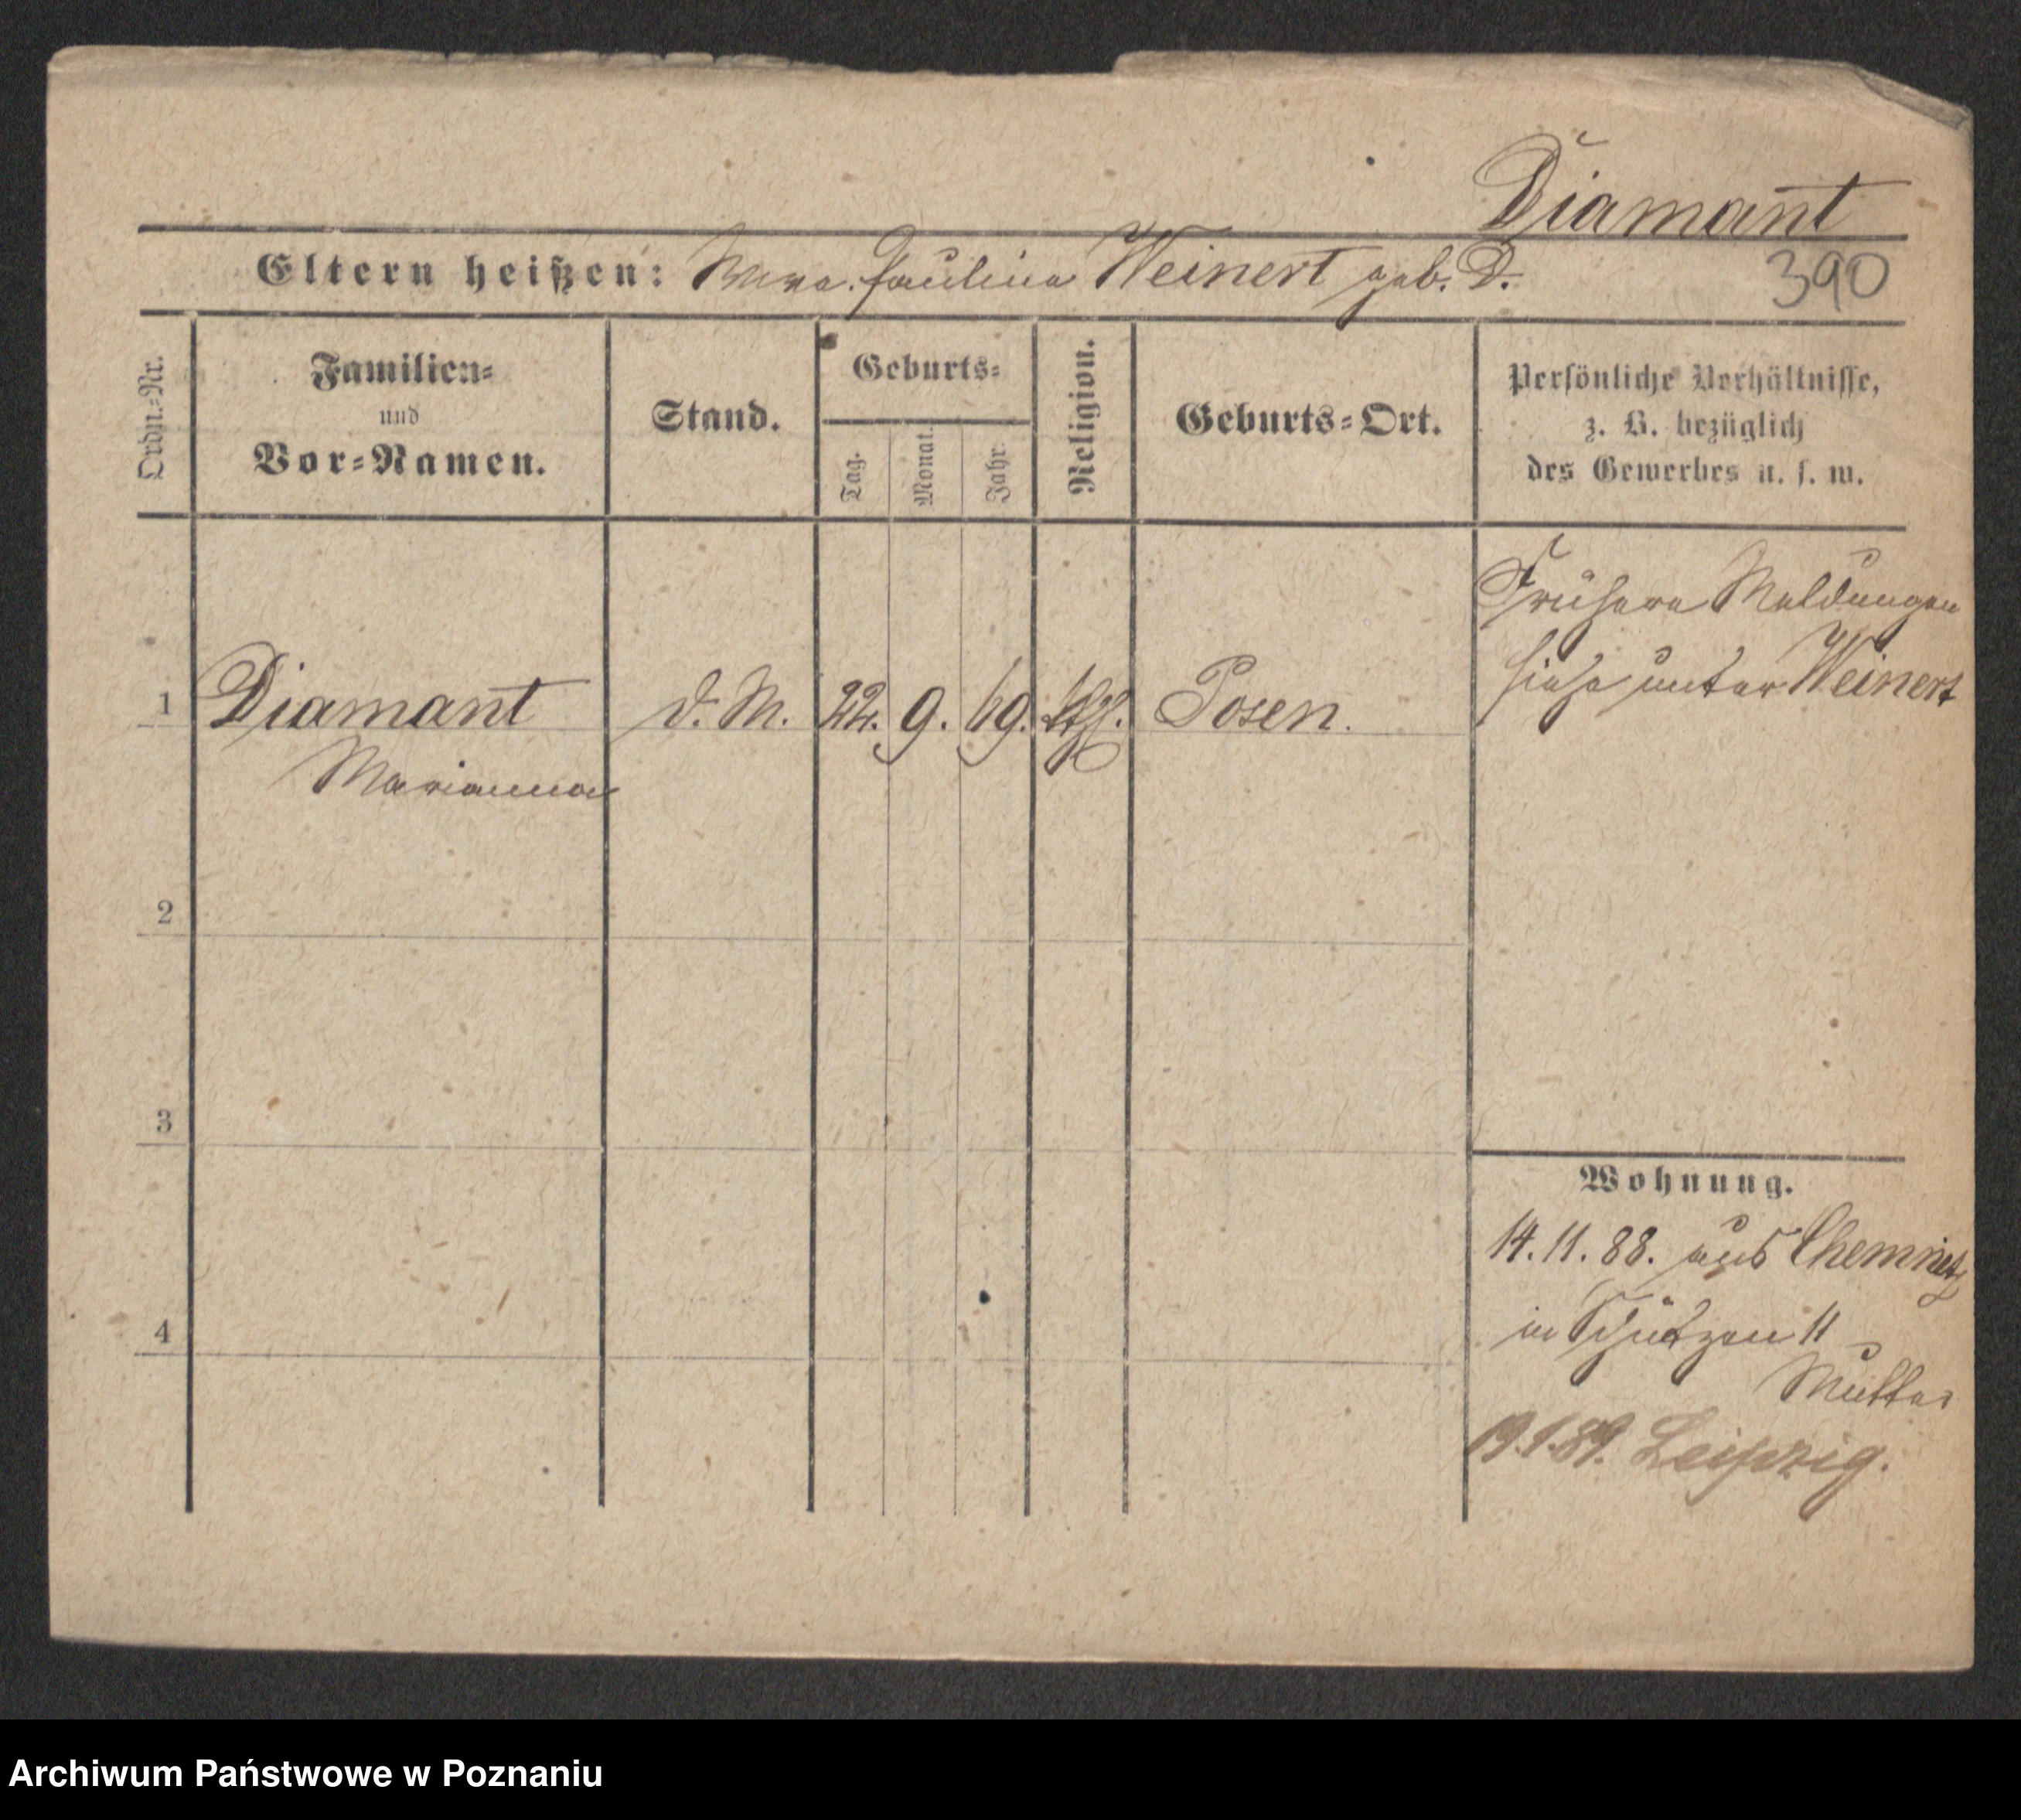 Diamant
Eltern heißen: Wwe. Pauline Weinert geb. D.
390
Ordn.-Nr.
Familien-
und
Vor-Namen.
Stand.
Geburts-
Tag.
Monat.
Jahr.
Religion.
Geburts-Ort.
Persönliche Verhältnisse,
z. B. bezüglich
des Gewerbes u. s. w.
Frühere Meldungen
siehe unter Weinert
1 Diamant d. M. 22. 9. 69. kth. Posen.
Marianna
2
3
4
Wohnung.
14. 11. 88. aus Chemnitz
in Schützen 11
Mutter
19.1.89. Leipzig.
Archiwum Państwowe w Poznaniu